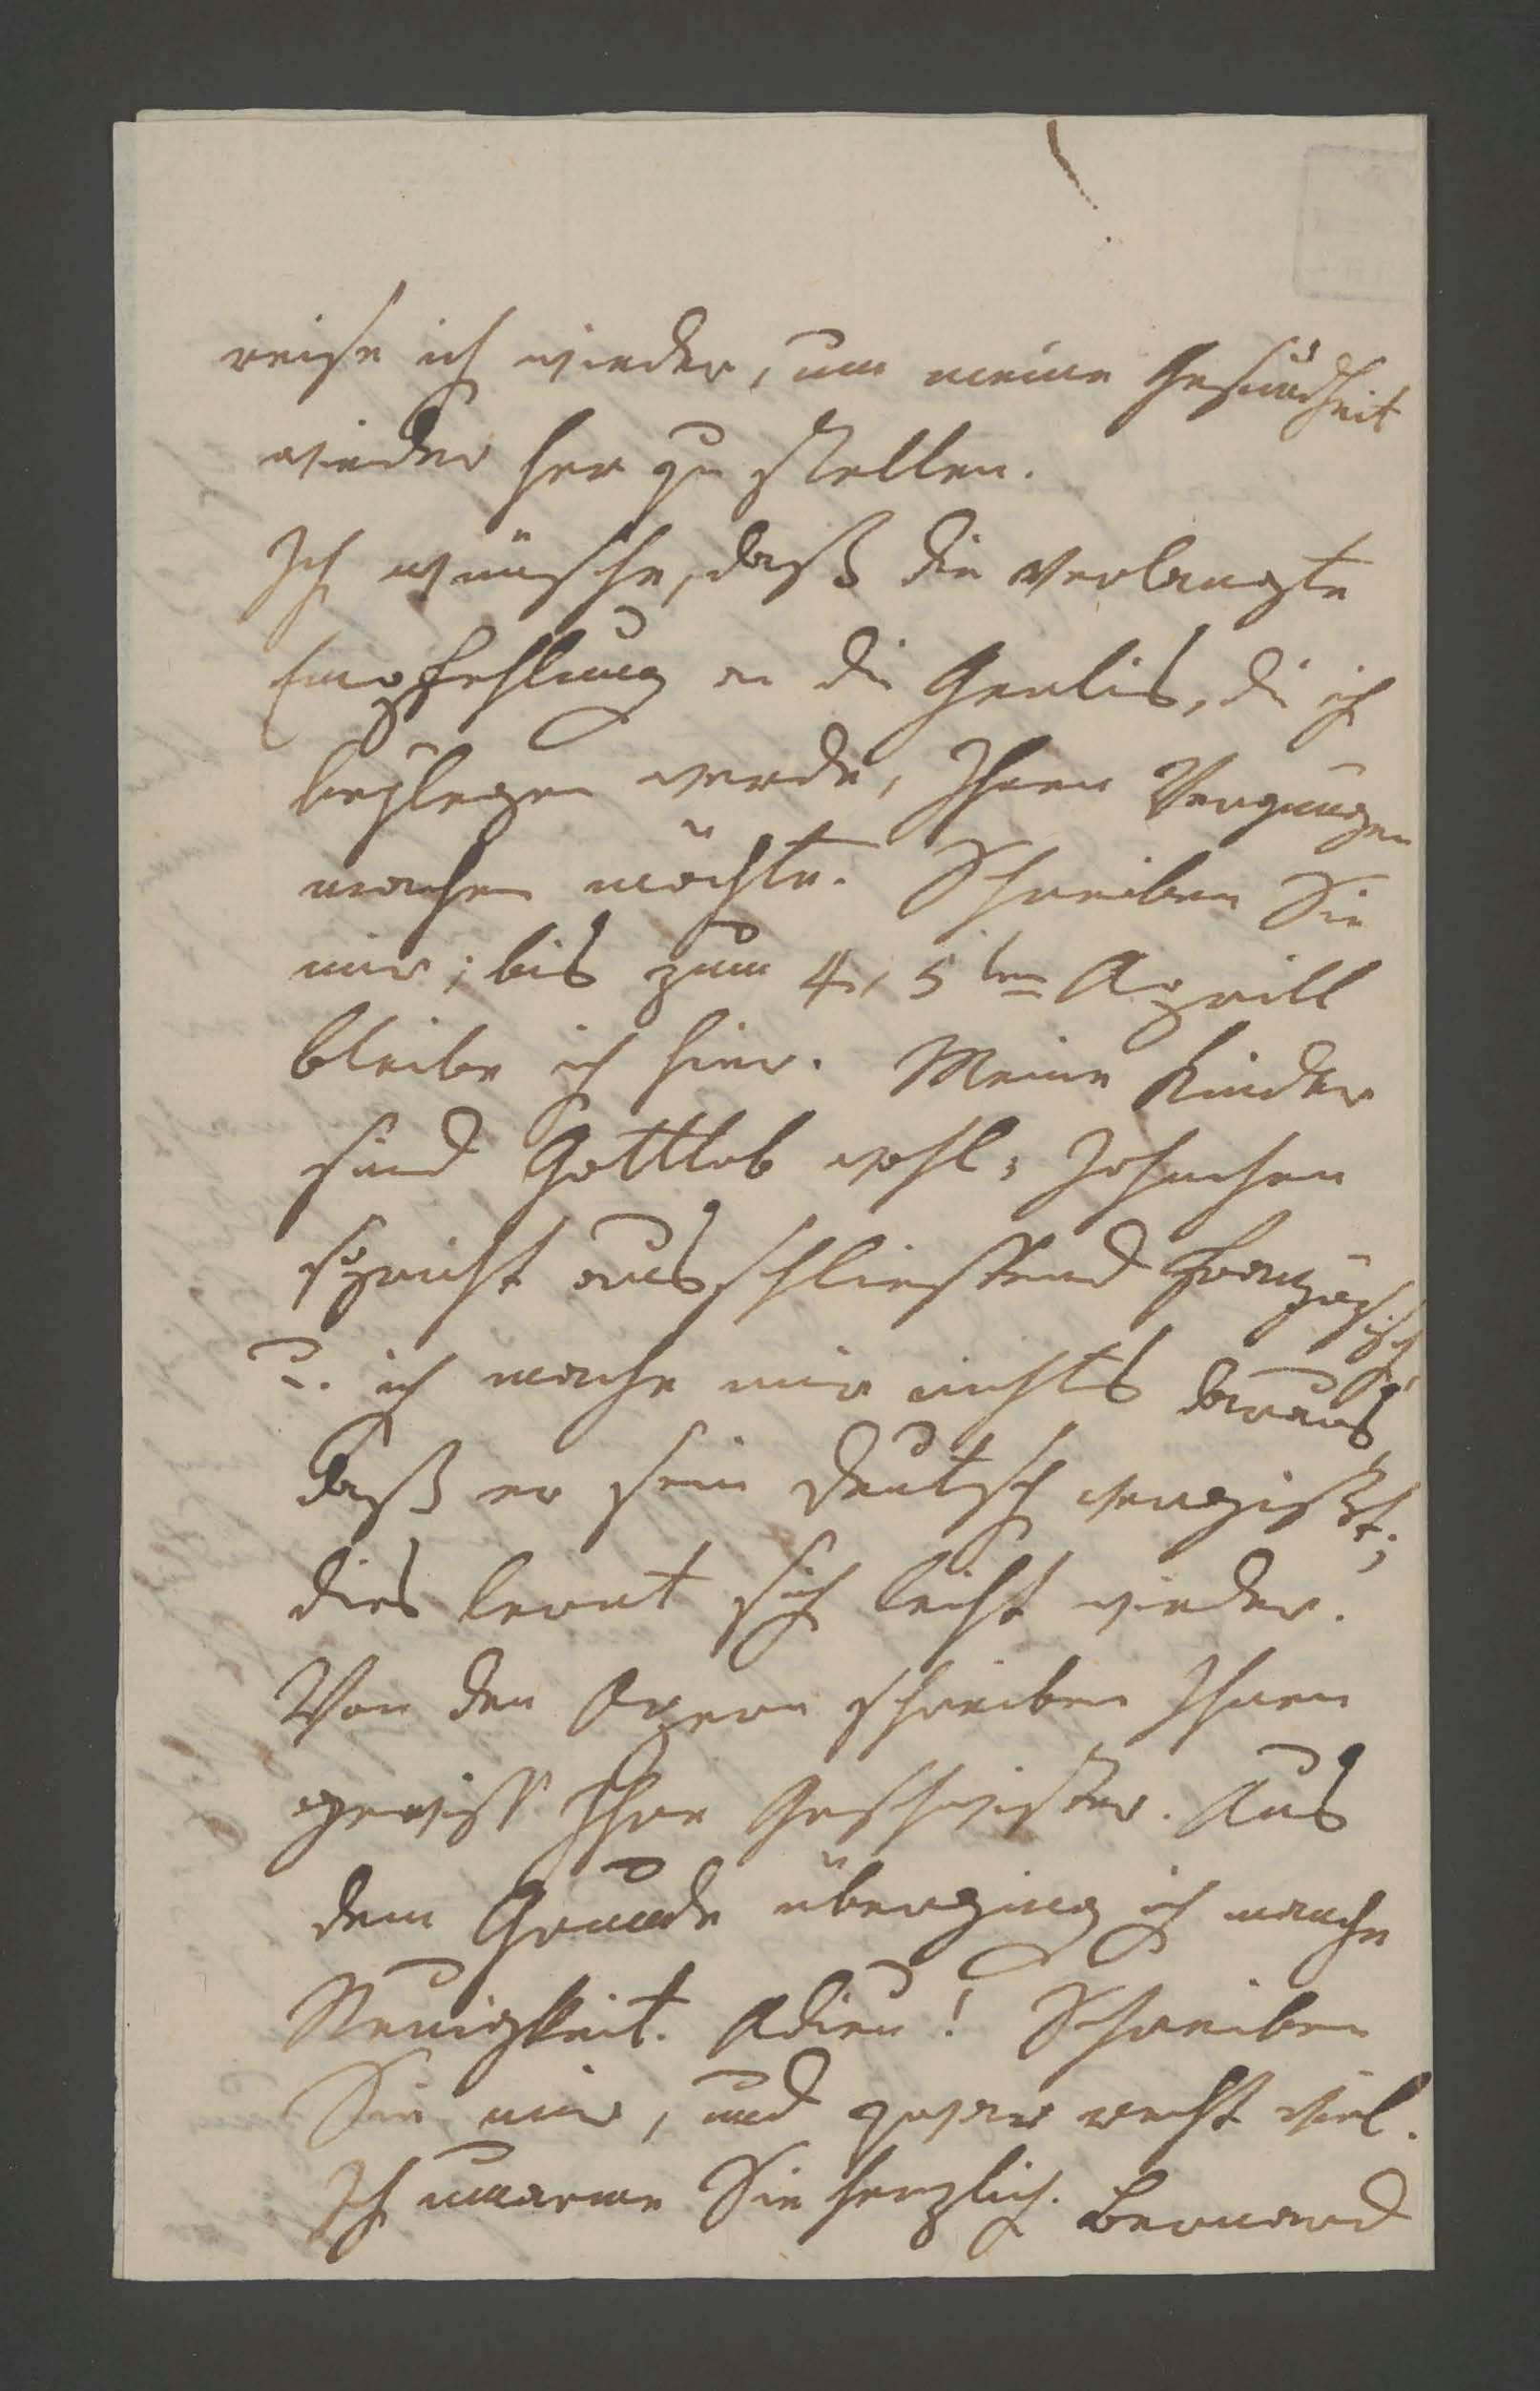 reise ich wieder, um meine Gesundheit
wieder her zu stellen.
Ich wünsche, daß die verlangte
Empfehlung an die Genlis, die ich
beylegen werde, Ihnen Vergnügen
machen möchte. Schreiben Sie
mir; bis zum 4, 5ten Aprill
bleibe ich hier. Meine Kinder
sind Gottlob wohl; Johnchen
spricht ausschliessend französisch,
u. ich mache mir nichts daraus
daß er sein deutsch vergißt;
dies lernt sich leicht wieder.
Von den Opern schreiben Ihnen
gewiss Ihre Geschwister. Aus
dem Grunde überging ich manche
Neuigkeit. Adieu! Schreiben
Sie mir, und zwar recht viel.
Ich umarme Sie herzlich. Bernard